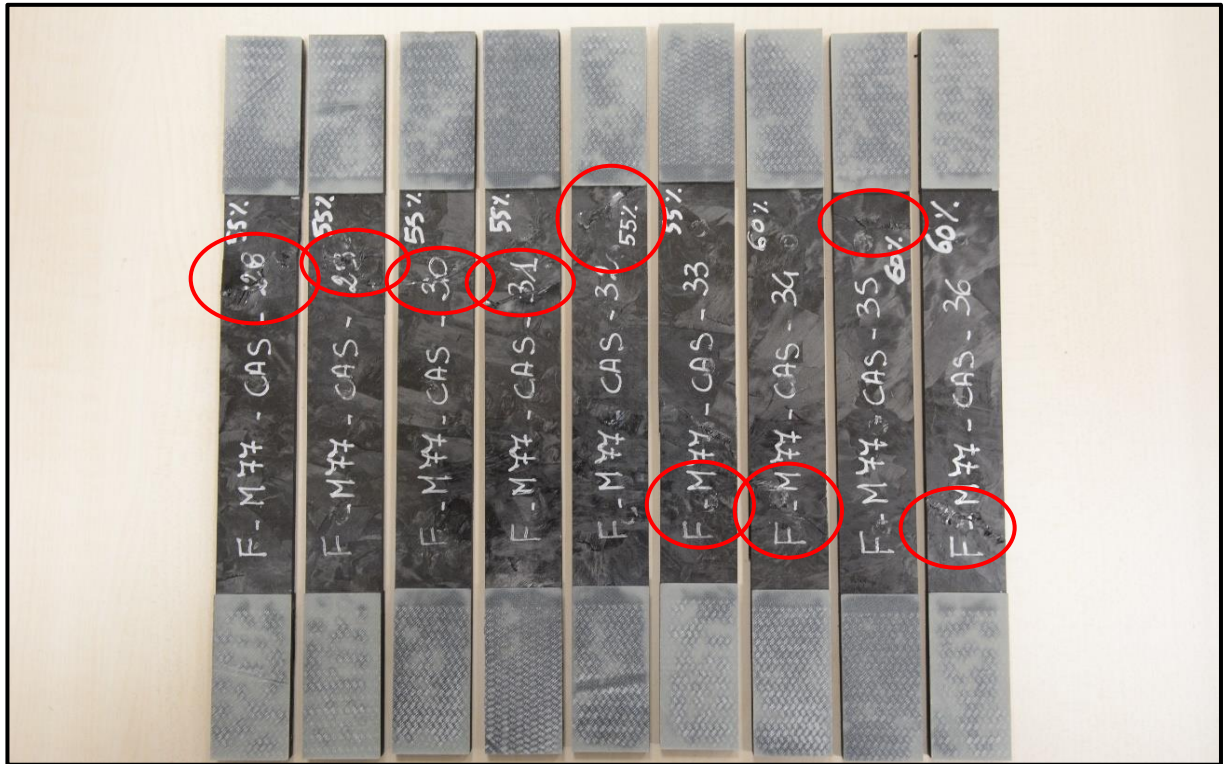 F-M77 - CAS - 28 55%
F-M77 - CAS - 29 55%
F-M77 - CAS - 30 55%
F-M77 - CAS - 31 55%
F-M77 - CAS - 32 55%
F-M77 - CAS - 33 55%
F-M77 - CAS - 34 60%
F-M77 - CAS - 35 60%
F-M77 - CAS - 36 60%